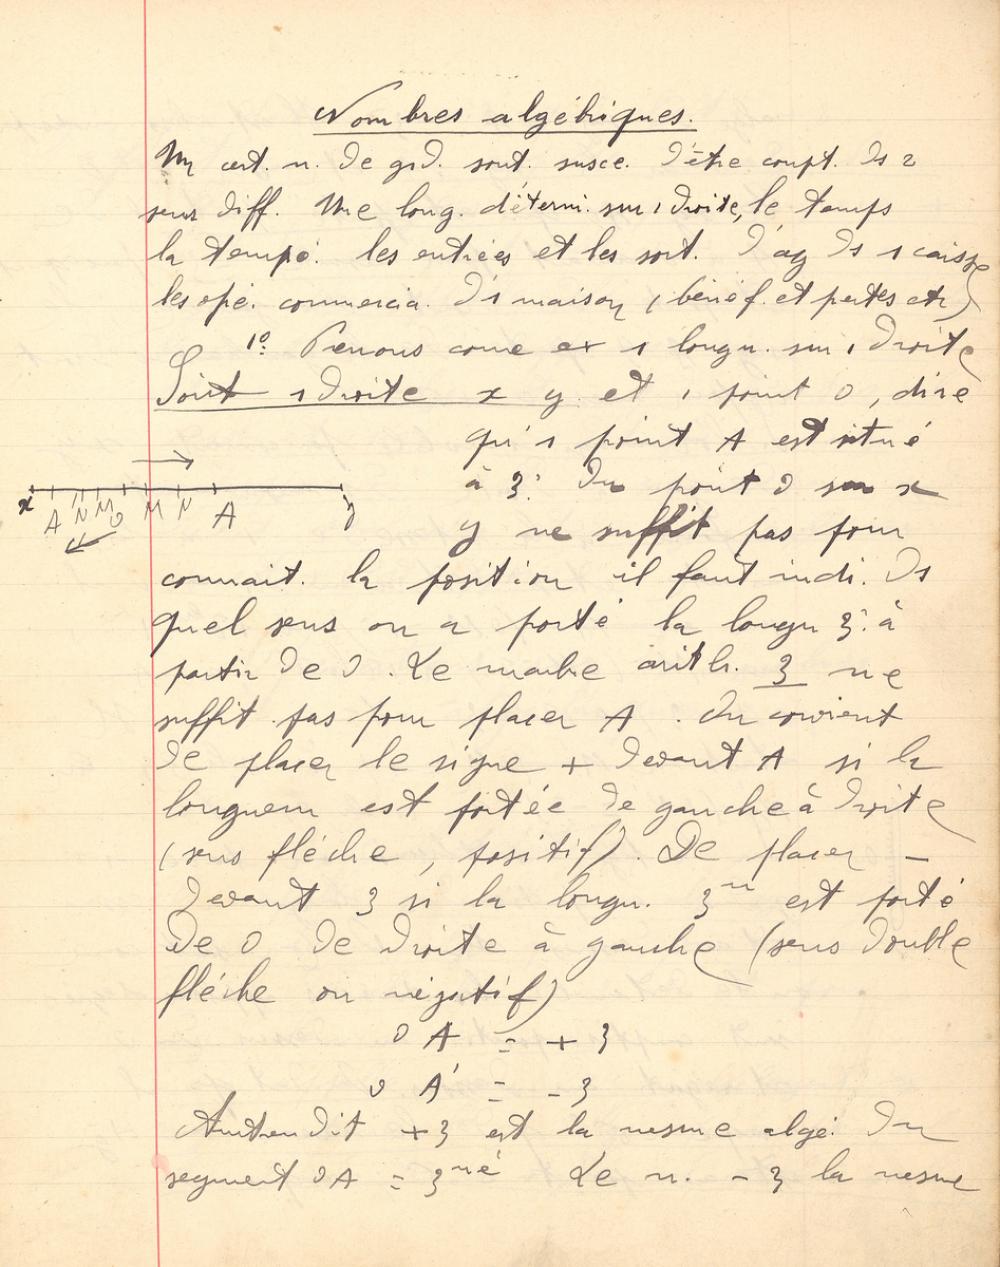 Nombres algébriques.
Un cert. n. de grd. sont. susce. d'être compt. ds 2
sens diff. Une long. détermi. sur 1 droite, le temps
la tempé. les entrées et les sort. d'ag ds 1 caisse
les opé. commercia. d'1 maison (bénéf. et pertes etc)
1º. Prenons come ex 1 longu. sur 1 droite
Soit 1 droite x y et 1 point O, dire
qu'1 point A est situé
à 3. du point O sur x
y ne suffit pas pour
x A N M O M N A y
connait. la position il faut indi. ds
quel sens on a porté la longu 3. à
partir de O. Le nombre arith. 3 ne
suffit pas pour placer A. On convient
de placer le signe + devant A si la
longueur est portée de gauche à droite
(sens flèche, positif). De placer -
devant 3 si la longu. 3 est porté
de O de droite à gauche (sens double
flèche ou négatif)
O A = + 3
O A' = - 3
Autren dit +3 est la mesure algé. du
segment OA = 3 Le n. - 3 la mesure